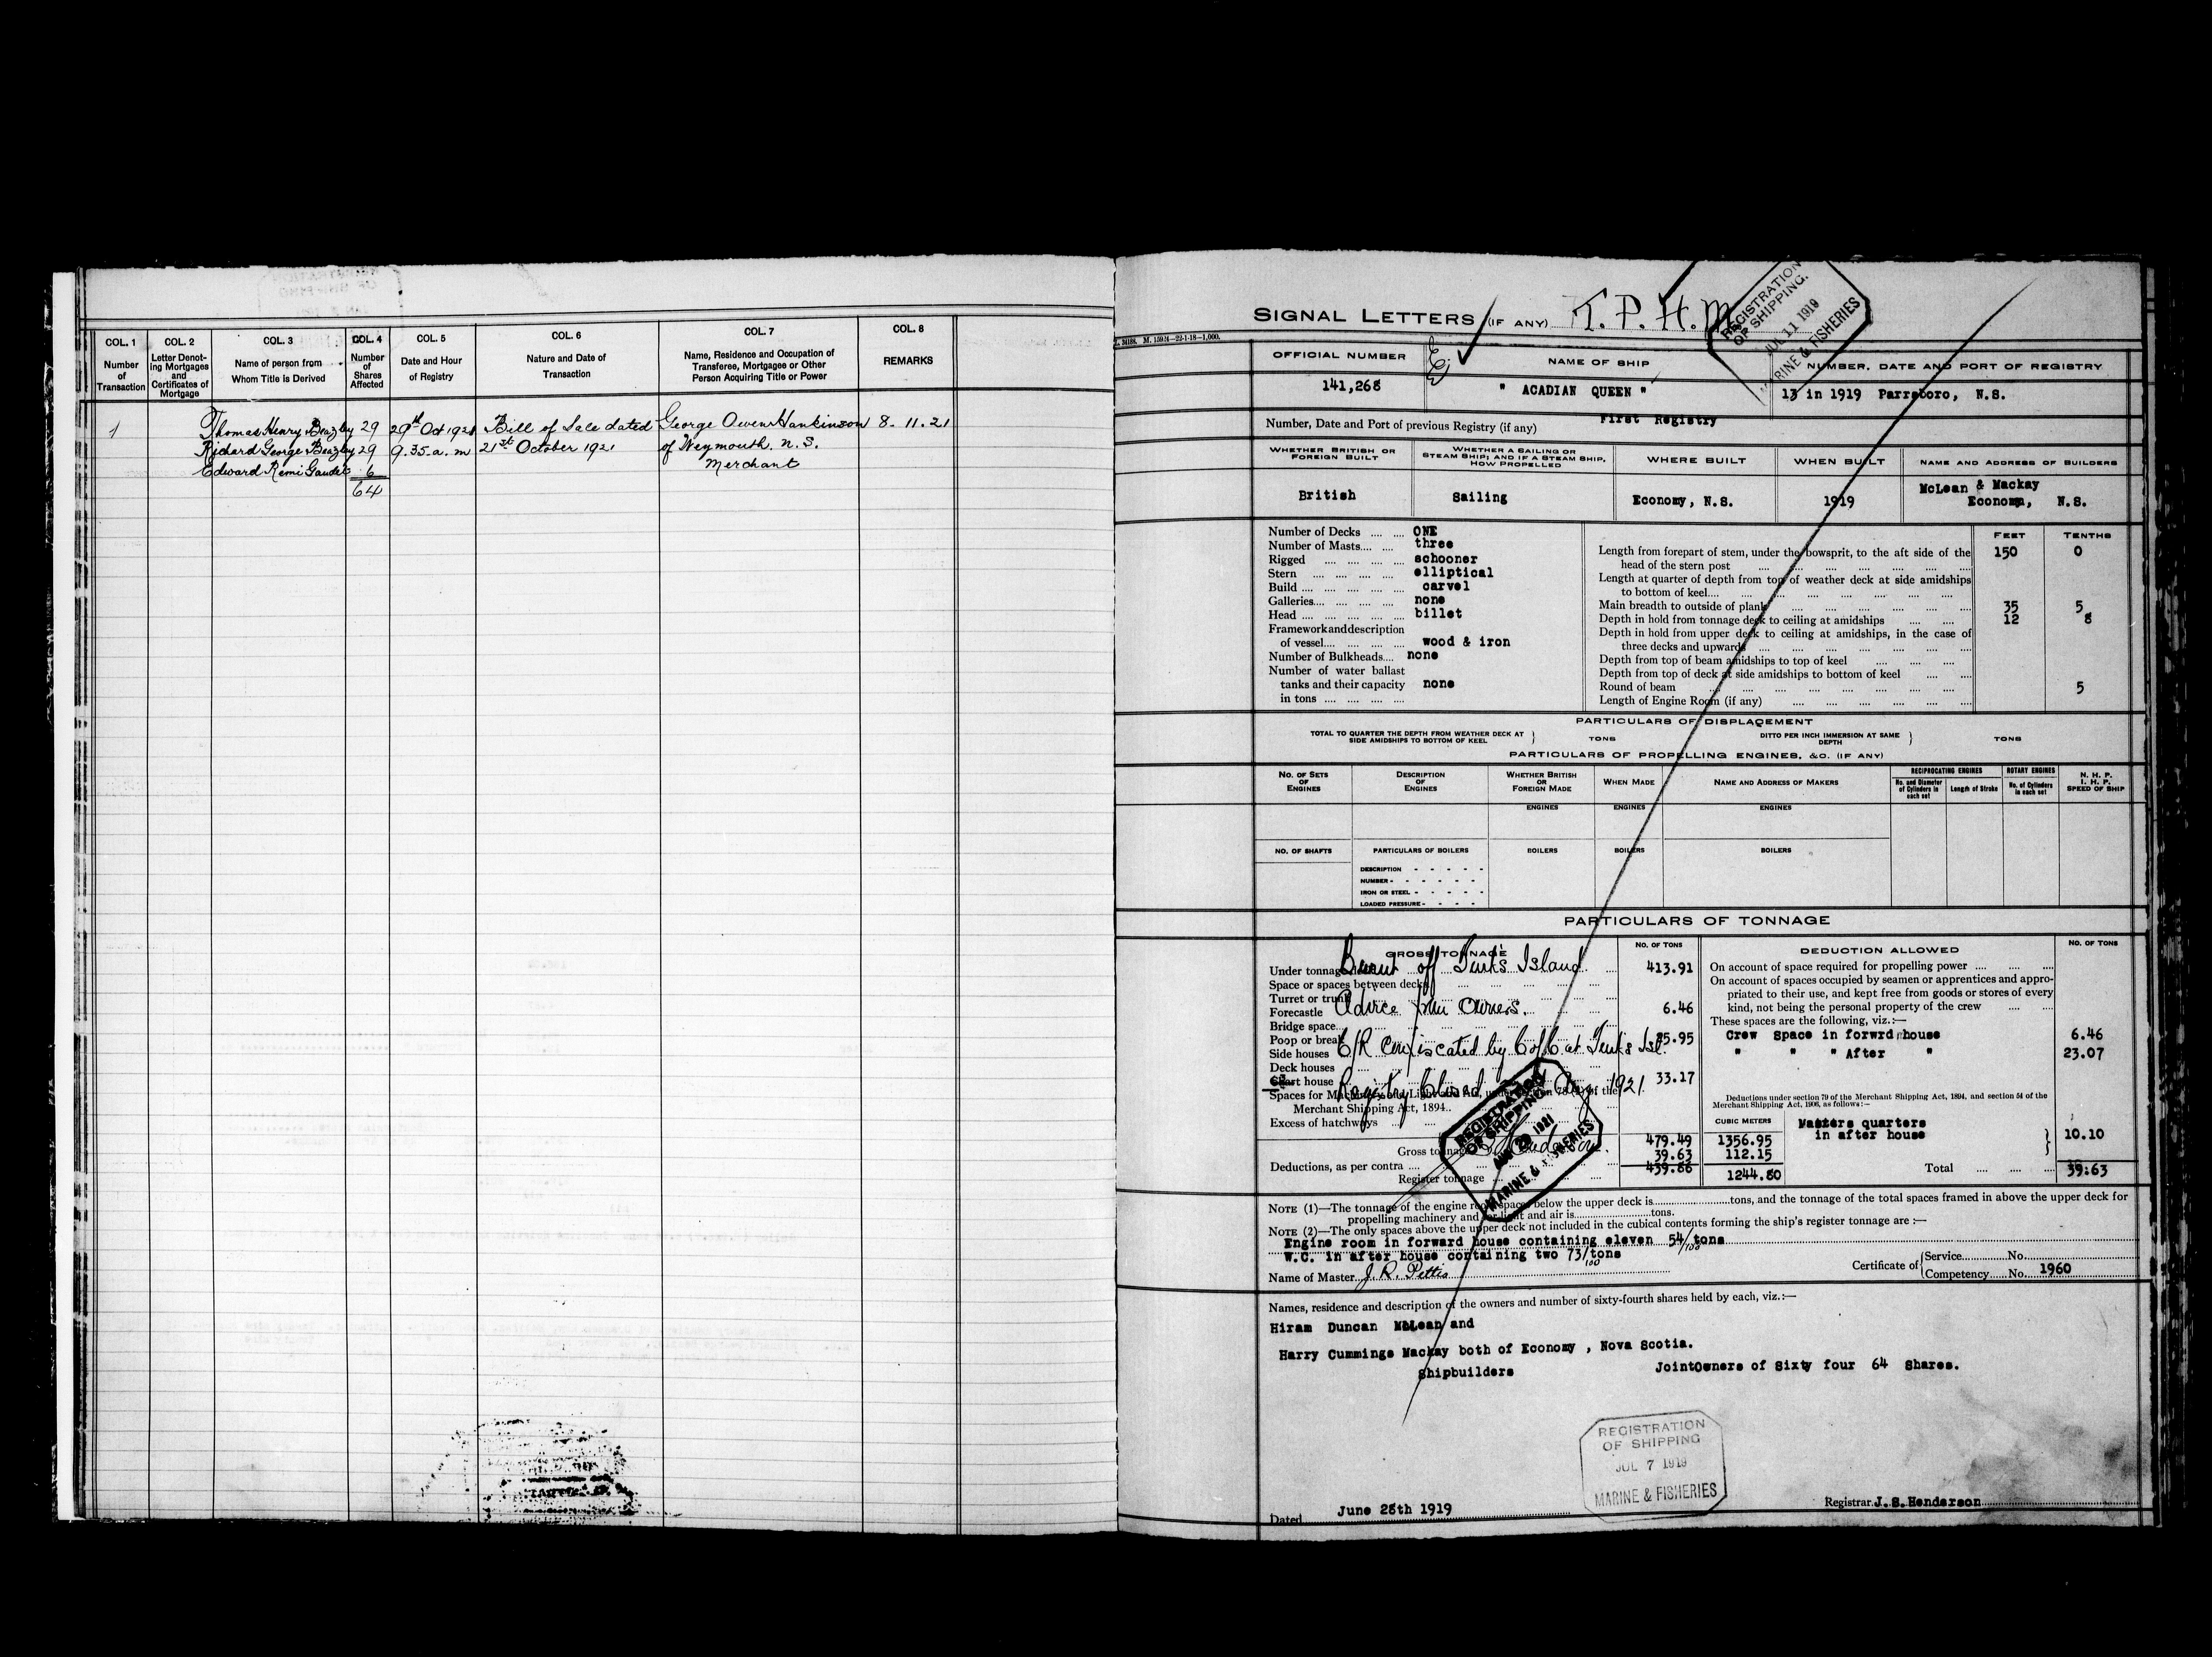 COL. 1
Number
of
Transaction
COL. 2
Letter Denot-
ing Mortgages
and
Certificates of
Mortgage
COL. 3
Name of person from
Whom Title is Derived
COL. 4
Number
of
Shares
Affected
COL. 5
Date and Hour
of Registry
COL. 6
Nature and Date of
Transaction
COL. 7
Name, Residence and Occupation of
Transferee, Mortgagee or Other
Person Acquiring Title or Power
COL. 8
REMARKS
1 Thomas Henry Beazley 29 29th Oct 1921 Bill of Sale dated George Owen Hankinson 8. 11. 21
Richard George Beazley 29 9.35. a. m 21st October 1921 of Weymouth. N. S.
Edward Remi Gaudet 6 Merchant
64
SIGNAL LETTERS (IF ANY) T. P. H. M.
REGISTRATION
OF SHIPPING.
JUL 11 1919
MARINE & FISHERIES
34188. M. 15924—22-1-18—1,000.
OFFICIAL NUMBER
141,268
NAME OF SHIP
" ACADIAN QUEEN "
NUMBER, DATE AND PORT OF REGISTRY
13 in 1919 Parrsboro, N.S.
Number, Date and Port of previous Registry (if any) First Registry
WHETHER BRITISH OR
FOREIGN BUILT
WHETHER A SAILING OR
STEAM SHIP; AND IF A STEAM SHIP,
HOW PROPELLED
WHERE BUILT
WHEN BUILT
NAME AND ADDRESS OF BUILDERS
British
Sailing
Economy, N.S.
1919
McLean & Mackay
Economy, N.S.
Number of Decks .... .... ONE
Number of Masts.... .... three
Rigged .... .... .... .... schooner
Stern .... .... .... .... elliptical
Build .... .... .... .... carvel
Galleries.... .... .... .... none
Head .... .... .... .... billet
Framework and description
of vessel.... .... .... .... wood & iron
Number of Bulkheads.... none
Number of water ballast
tanks and their capacity none
in tons .... .... .... ....
FEET TENTHS
Length from forepart of stem, under the bowsprit, to the aft side of the 150 0
head of the stern post
Length at quarter of depth from top of weather deck at side amidships
to bottom of keel....
Main breadth to outside of plank 35 5
Depth in hold from tonnage deck to ceiling at amidships 12 8
Depth in hold from upper deck to ceiling at amidships, in the case of
three decks and upwards
Depth from top of beam amidships to top of keel
Depth from top of deck at side amidships to bottom of keel
Round of beam 5
Length of Engine Room (if any)
PARTICULARS OF DISPLACEMENT
TOTAL TO QUARTER THE DEPTH FROM WEATHER DECK AT
SIDE AMIDSHIPS TO BOTTOM OF KEEL } TONS
DITTO PER INCH IMMERSION AT SAME
DEPTH } TONS
PARTICULARS OF PROPELLING ENGINES, &C. (IF ANY)
NO. OF SETS
OF
ENGINES
DESCRIPTION
OF
ENGINES
WHETHER BRITISH
OR
FOREIGN MADE
WHEN MADE
NAME AND ADDRESS OF MAKERS
RECIPROCATING ENGINES
No. and Diameter
of Cylinders in
each set
Length of Stroke
ROTARY ENGINES
No. of Cylinders
in each set
N. H. P.
I. H. P.
SPEED OF SHIP
ENGINES ENGINES ENGINES
NO. OF SHAFTS PARTICULARS OF BOILERS BOILERS BOILERS BOILERS
DESCRIPTION - - - - -
NUMBER - - - - - -
IRON OR STEEL - - - - -
LOADED PRESSURE - - - -
PARTICULARS OF TONNAGE
GROSS TONNAGE
NO. OF TONS
Under tonnage deck 413.91
Space or spaces between decks
Turret or trunk
Forecastle 6.46
Bridge space
Poop or break 25.95
Side houses
Deck houses
Chart house 33.17
Spaces for Machinery and Light and Air, under section 78 (2) of the
Merchant Shipping Act, 1894..
Excess of hatchways
Gross tonnage 479.49 1356.95
Deductions, as per contra .... 39.63 112.15
Register tonnage 439.86 1244.80
CUBIC METERS
Burnt off Turks Island
Advice from Owners.
C/R Confiscated by C of C at Turks Isl.
Registry Closed Aug. 1921
REGISTRATION
OF SHIPPING
AUG 29 1921
MARINE & FISHERIES
DEDUCTION ALLOWED
NO. OF TONS
On account of space required for propelling power
On account of spaces occupied by seamen or apprentices and appro-
priated to their use, and kept free from goods or stores of every
kind, not being the personal property of the crew
These spaces are the following, viz.:—
Crew Space in forwrd house 6.46
" " " After " 23.07
Deductions under section 79 of the Merchant Shipping Act, 1894, and section 54 of the
Merchant Shipping Act, 1906, as follows:—
Masters quarters
in after house } 10.10
Total 39.63
NOTE (1)—The tonnage of the engine room spaces below the upper deck is........tons, and the tonnage of the total spaces framed in above the upper deck for
propelling machinery and for light and air is........tons.
NOTE (2)—The only spaces above the upper deck not included in the cubical contents forming the ship's register tonnage are :—
Engine room in forward house containing eleven 54/100 tons
W.C. in after house containing two 73/100 tons
Name of Master J. R. Pettis
Certificate of { Service........No........
Competency......No.. 1960
Names, residence and description of the owners and number of sixty-fourth shares held by each, viz.:—
Hiram Duncan McLean and
Harry Cummings Mackay both of Economy , Nova Scotia.
Shipbuilders JointOwners of Sixty four 64 Shares.
REGISTRATION
OF SHIPPING
JUL 7 1919
MARINE & FISHERIES
Dated June 28th 1919
Registrar J. S. Henderson